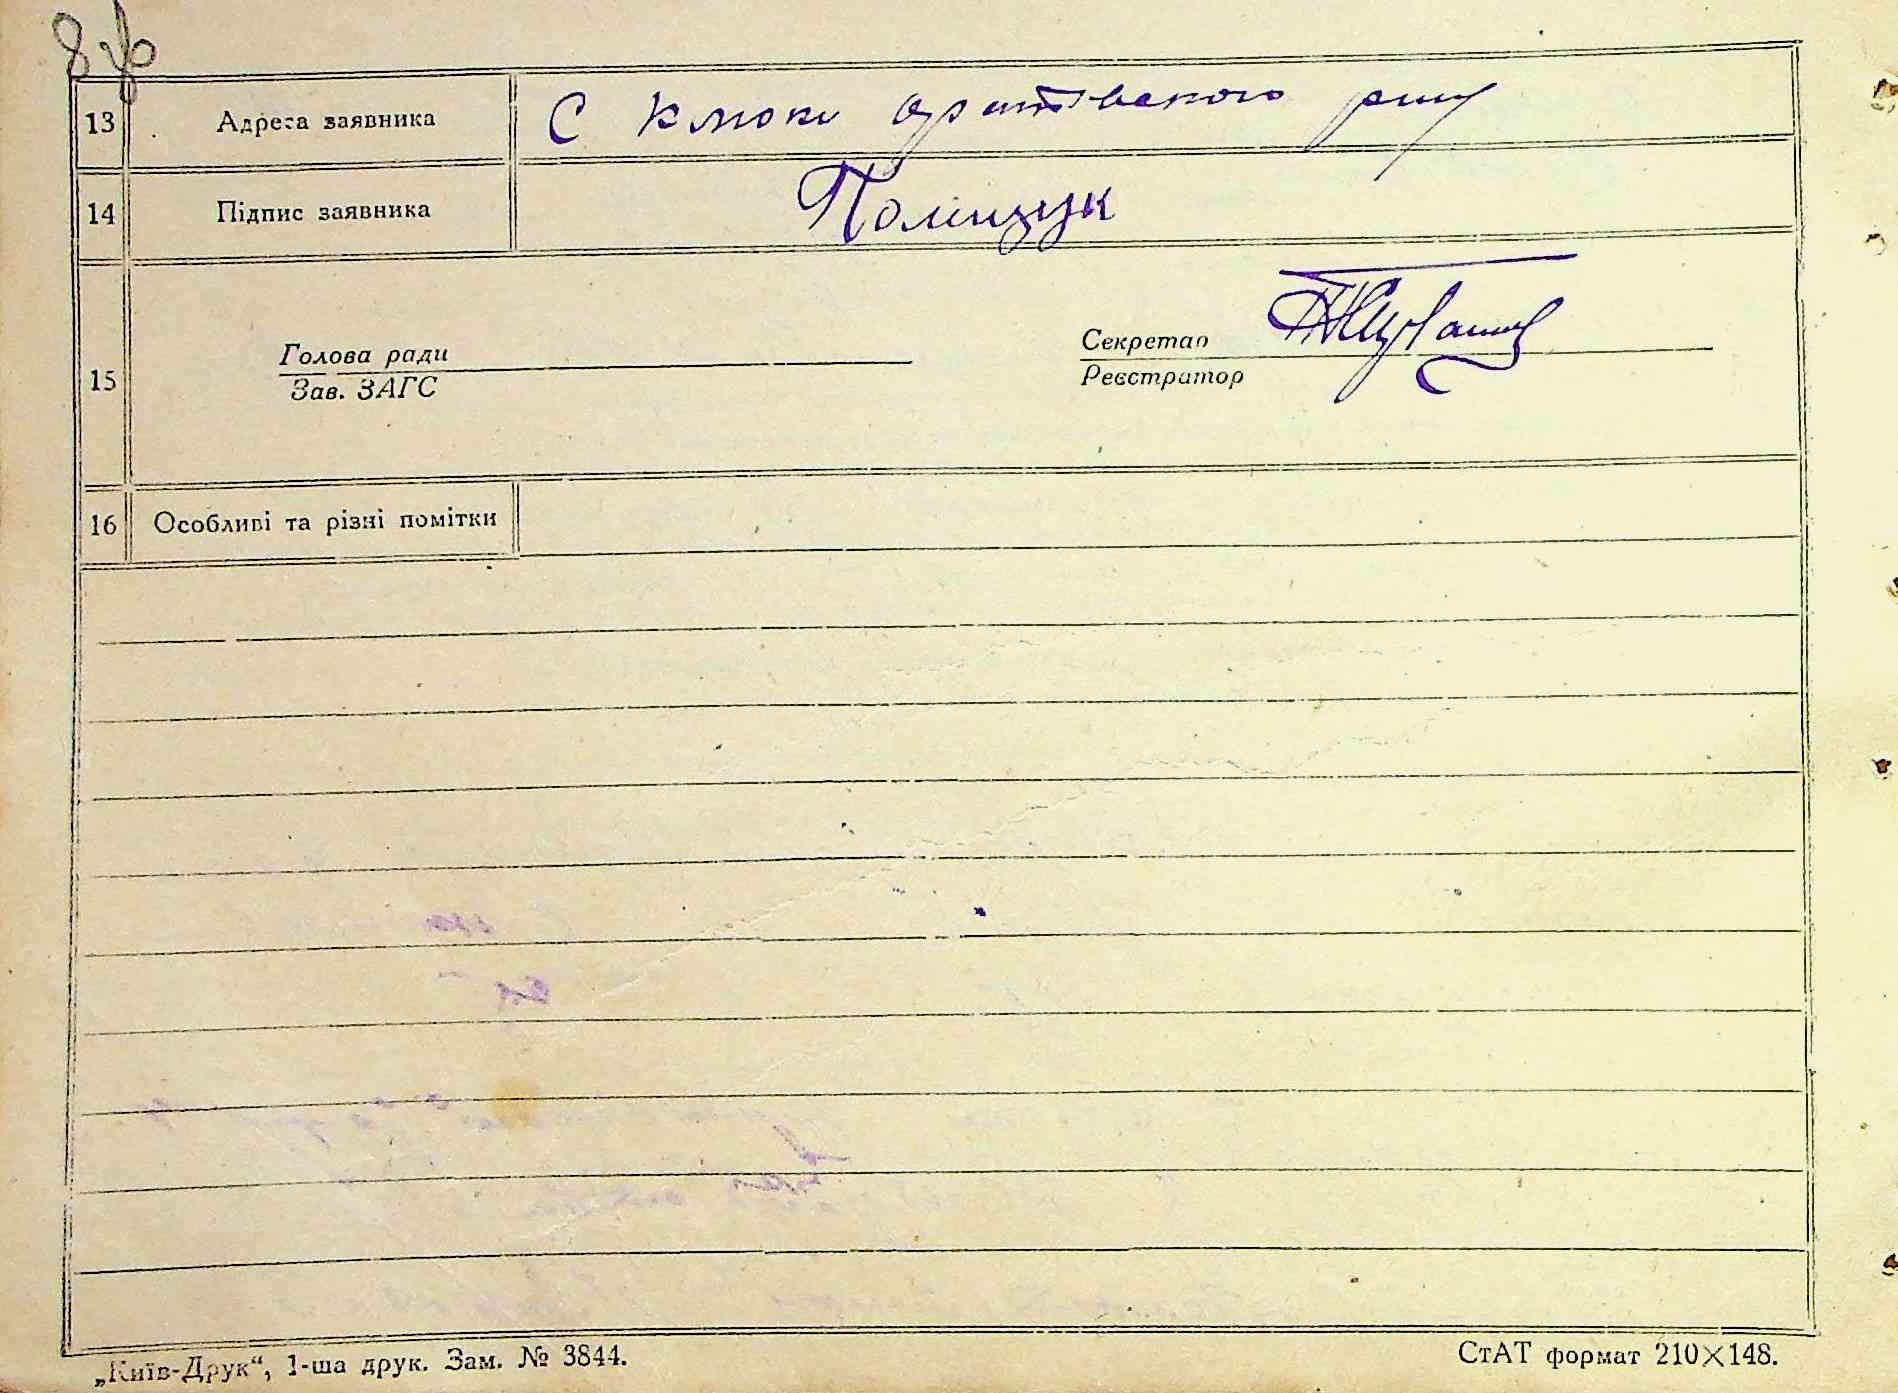 8 зв
13 Адреса заявника С Клюки Оратівского р-ну
14 Підпис заявника Поліщук
15 Голова ради Секретар
Зав. ЗАГС Реєстратор
16 Особливі та різні помітки
„Київ-Друк“, 1-ша друк. Зам. № 3844. СтАТ формат 210×148.